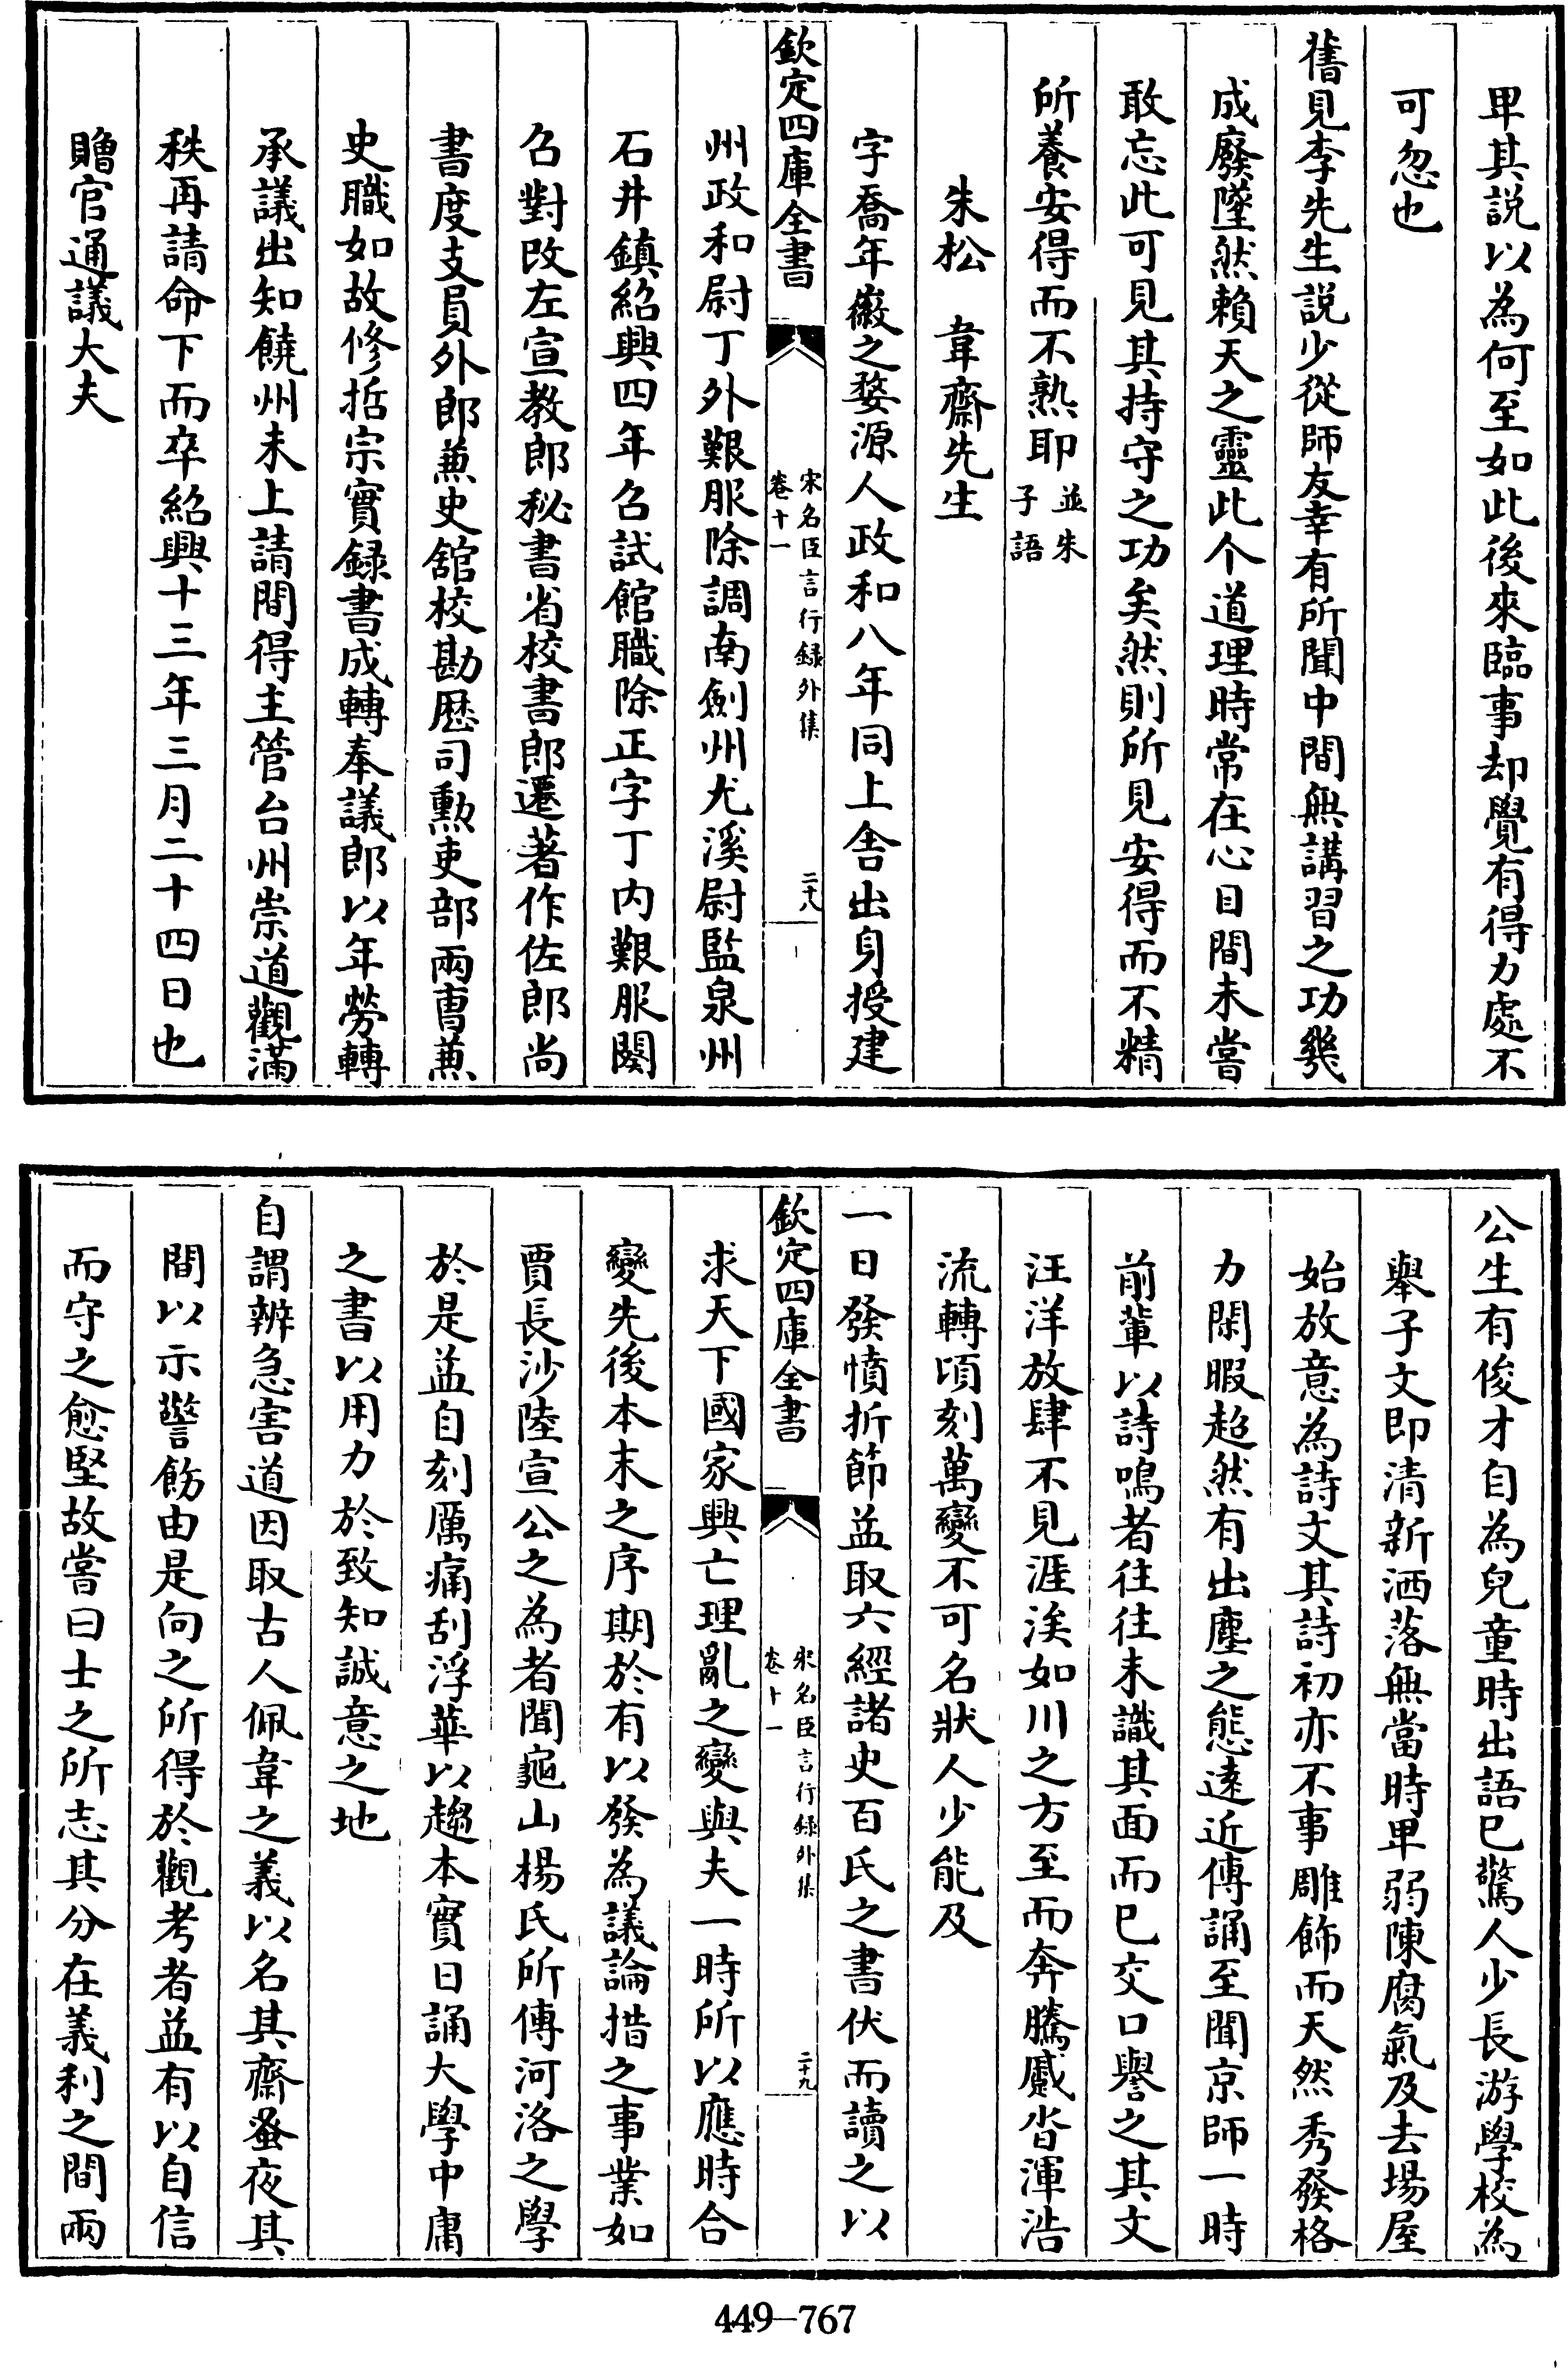 卑其説以為何至如此後來臨事却覺有得力處不
可忽也
舊見李先生説少從師友幸有所聞中間無講習之功幾
成廢墜然賴天之靈此个道理時常在心目間未嘗
敢忘此可見其持守之功矣然則所見安得而不精
所養安得而不熟耶並朱子語
朱松 韋齋先生
字喬年徽之婺源人政和八年同上舍出身授建
欽定四庫全書
宋名臣言行録外集
卷十一
二十八
州政和尉丁外艱服除調南劍州尤溪尉監泉州
石井鎮紹興四年召試館職除正字丁内艱服闋
召對改左宣教郎秘書省校書郎遷著作佐郎尚
書度支員外郎兼史舘校勘歴司勲吏部兩曹兼
史職如故修哲宗實録書成轉奉議郎以年勞轉
承議出知饒州未上請間得主管台州崇道觀滿
秩再請命下而卒紹興十三年三月二十四日也
贈官通議大夫
公生有俊才自為兒童時出語已驚人少長游學校為
舉子文即清新洒落無當時卑弱陳腐氣及去場屋
始放意為詩文其詩初亦不事雕飾而天然秀發格
力閑暇超然有出塵之態遠近傳誦至聞京師一時
前輩以詩鳴者往往未識其面而已交口譽之其文
汪洋放肆不見涯涘如川之方至而奔騰蹙沓渾浩
流轉頃刻萬變不可名狀人少能及
一日發憤折節益取六經諸史百氏之書伏而讀之以
欽定四庫全書
宋名臣言行録外集
卷十一
二十九
求天下國家興亡理亂之變與夫一時所以應時合
變先後本末之序期於有以發為議論措之事業如
賈長沙陸宣公之為者聞龜山楊氏所傳河洛之學
於是益自刻厲痛刮浮華以趨本實日誦大學中庸
之書以用力於致知誠意之地
自謂辨急害道因取古人佩韋之義以名其齋蚤夜其
間以示警飭由是向之所得於觀考者益有以自信
而守之愈堅故嘗曰士之所志其分在義利之間兩
449—767